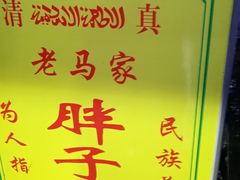 清 真
老马家
胖子
为人指
民族